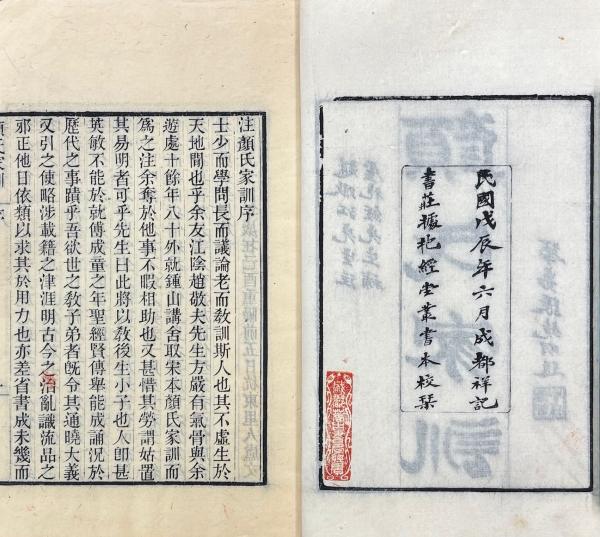 民國戊辰年六月成都祥記
書莊據抱經堂叢書本校栞
注顏氏家訓序
士少而學問長而議論老而敎訓斯人也其不虛生於
天地閒也乎余友江陰趙敬夫先生方嚴有氣骨與余
遊處十餘年八十外就鍾山講舍取宋本顏氏家訓而
爲之注余奪於他事不暇相助也又甚惜其勞謂姑置
其易明者可乎先生曰此將以敎後生小子也人卽甚
英敏不能於就傅成童之年聖經賢傳舉能成誦況於
歷代之事蹟乎吾欲世之敎子弟者旣令其通曉大義
又引之使略涉載籍之津涯明古今之治亂識流品之
邪正他日依類以求其於用力也亦差省書成未幾而